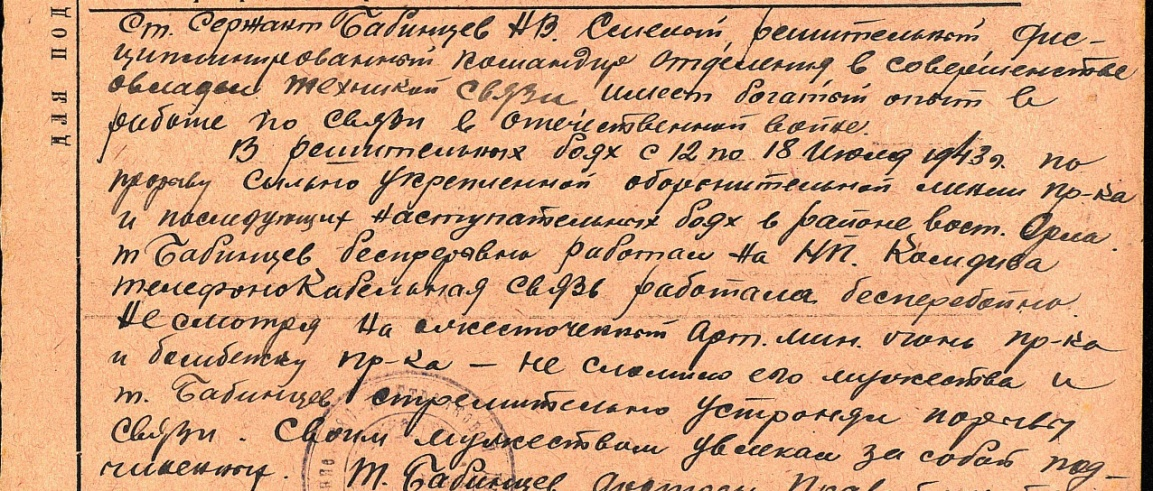 Ст. Сержант Бабинцев Н.В. Смелый, решительный, дис-
циплинированный командир отделения в совершенстве
овладел техникой связи имеет богатый опыт в
работе по связи в отечественной войне.
В решительных боях с 12 по 18 Июля 1943г. по
прорыву сильно укрепленной оборонительной линии пр-ка
и последующих наступательных боях в районе вост. Орла
т Бабинцев беспрерывно работал на НП. Комдива
телефоно Кабельная связь работала бесперебойно.
Не смотря на ожесточенный арт. мин. огонь пр-ка
и бомбежку пр-ка – не сломило его мужества и
т. Бабинцев стремительно устронял порывы
связи. Своим мужеством увлекал за собой под-
чиненных. Т. Бабинцев достоин Прав
ДОП ВГД